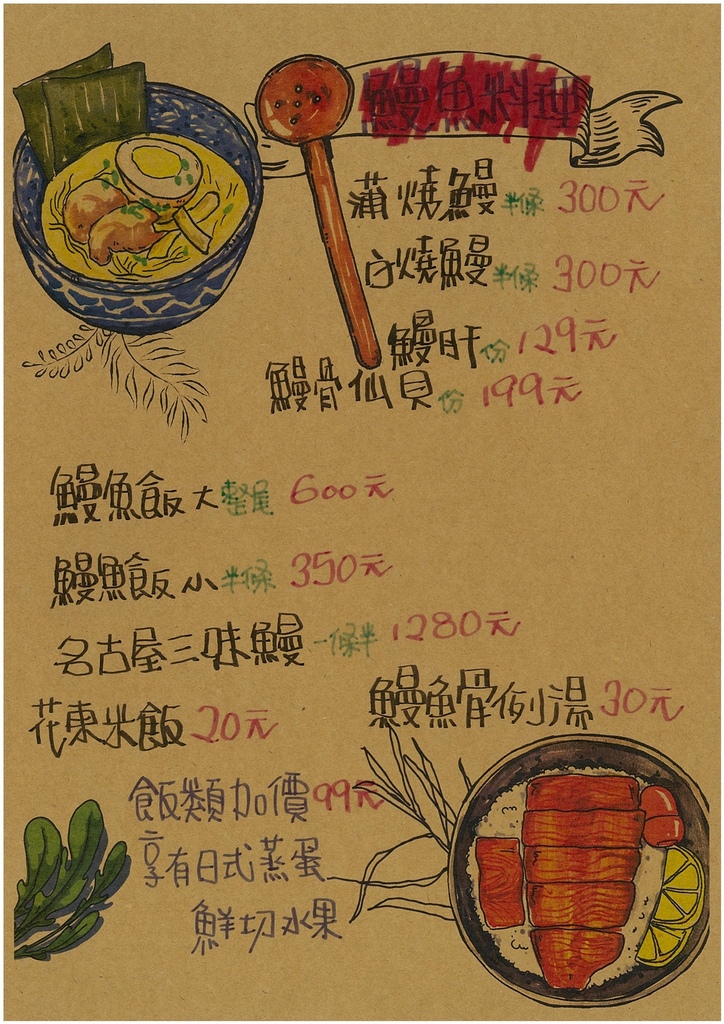 鰻魚料理
蒲燒鰻半條 300元
白燒鰻半條 300元
鰻肝份 129元
鰻骨仙貝份 199元
鰻魚飯大整尾 600元
鰻魚飯小半條 350元
名古屋三味鰻一條半 1280元
花東米飯 20元
鰻魚骨例湯 30元
飯類加價99元
享有日式蒸蛋
鮮切水果